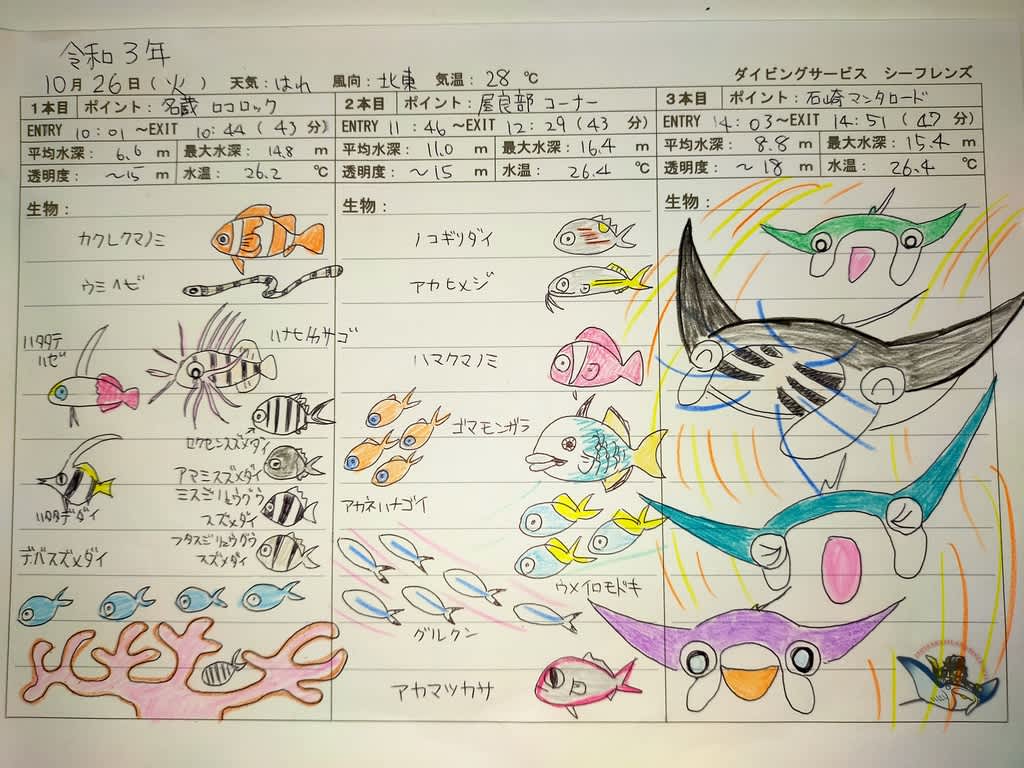 令和3年
10月26日(火) 天気:はれ 風向:北東 気温:28℃ ダイビングサービス シーフレンズ
1本目 ポイント:名蔵 ロコロック
ENTRY 10:01~EXIT 10:44(43分)
平均水深:6.6m 最大水深:14.8m
透明度:~15m 水温:26.2℃
生物:
カクレクマノミ
ウミヘビ
ハタタテ
ハゼ
ハナヒゲカサゴ
ロクセンスズメダイ
アマミスズメダイ
ミスジリュウグウ
スズメダイ
ハタタテダイ
フタスジリュウグウ
スズメダイ
デバスズメダイ
2本目 ポイント:屋良部 コーナー
ENTRY 11:46~EXIT 12:29(43分)
平均水深:11.0m 最大水深:16.4m
透明度:~15m 水温:26.4℃
生物:
ノコギリダイ
アカヒメジ
ハマクマノミ
ゴマモンガラ
アカネハナゴイ
ウメイロモドキ
グルクン
アカマツカサ
3本目 ポイント:石崎マンタロード
ENTRY 14:03~EXIT 14:51(47分)
平均水深:8.8m 最大水深:15.4m
透明度:~18m 水温:26.4℃
生物: